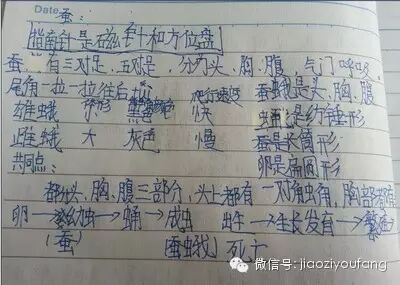 Date 蚕:
指南针是磁针和方位盘
蚕,有三对足,五对足,分为头,胸,腹,气门呼吸,
尾角一拉一拉往后 蚕蛾是头,胸,腹
雄蛾 黑色 爬行速度快 蛹是纺锤形
雌蛾 大 灰色 慢 蚕是长筒形
共同点: 卵是扁圆形
都分头,胸,腹三部分,头上都有一对角虫角,胸部都有
卵→幼虫→蛹→成虫 出生→生长发育→繁殖
(蚕) (蚕蛾) 死亡
微信号: jiaoziyoufang